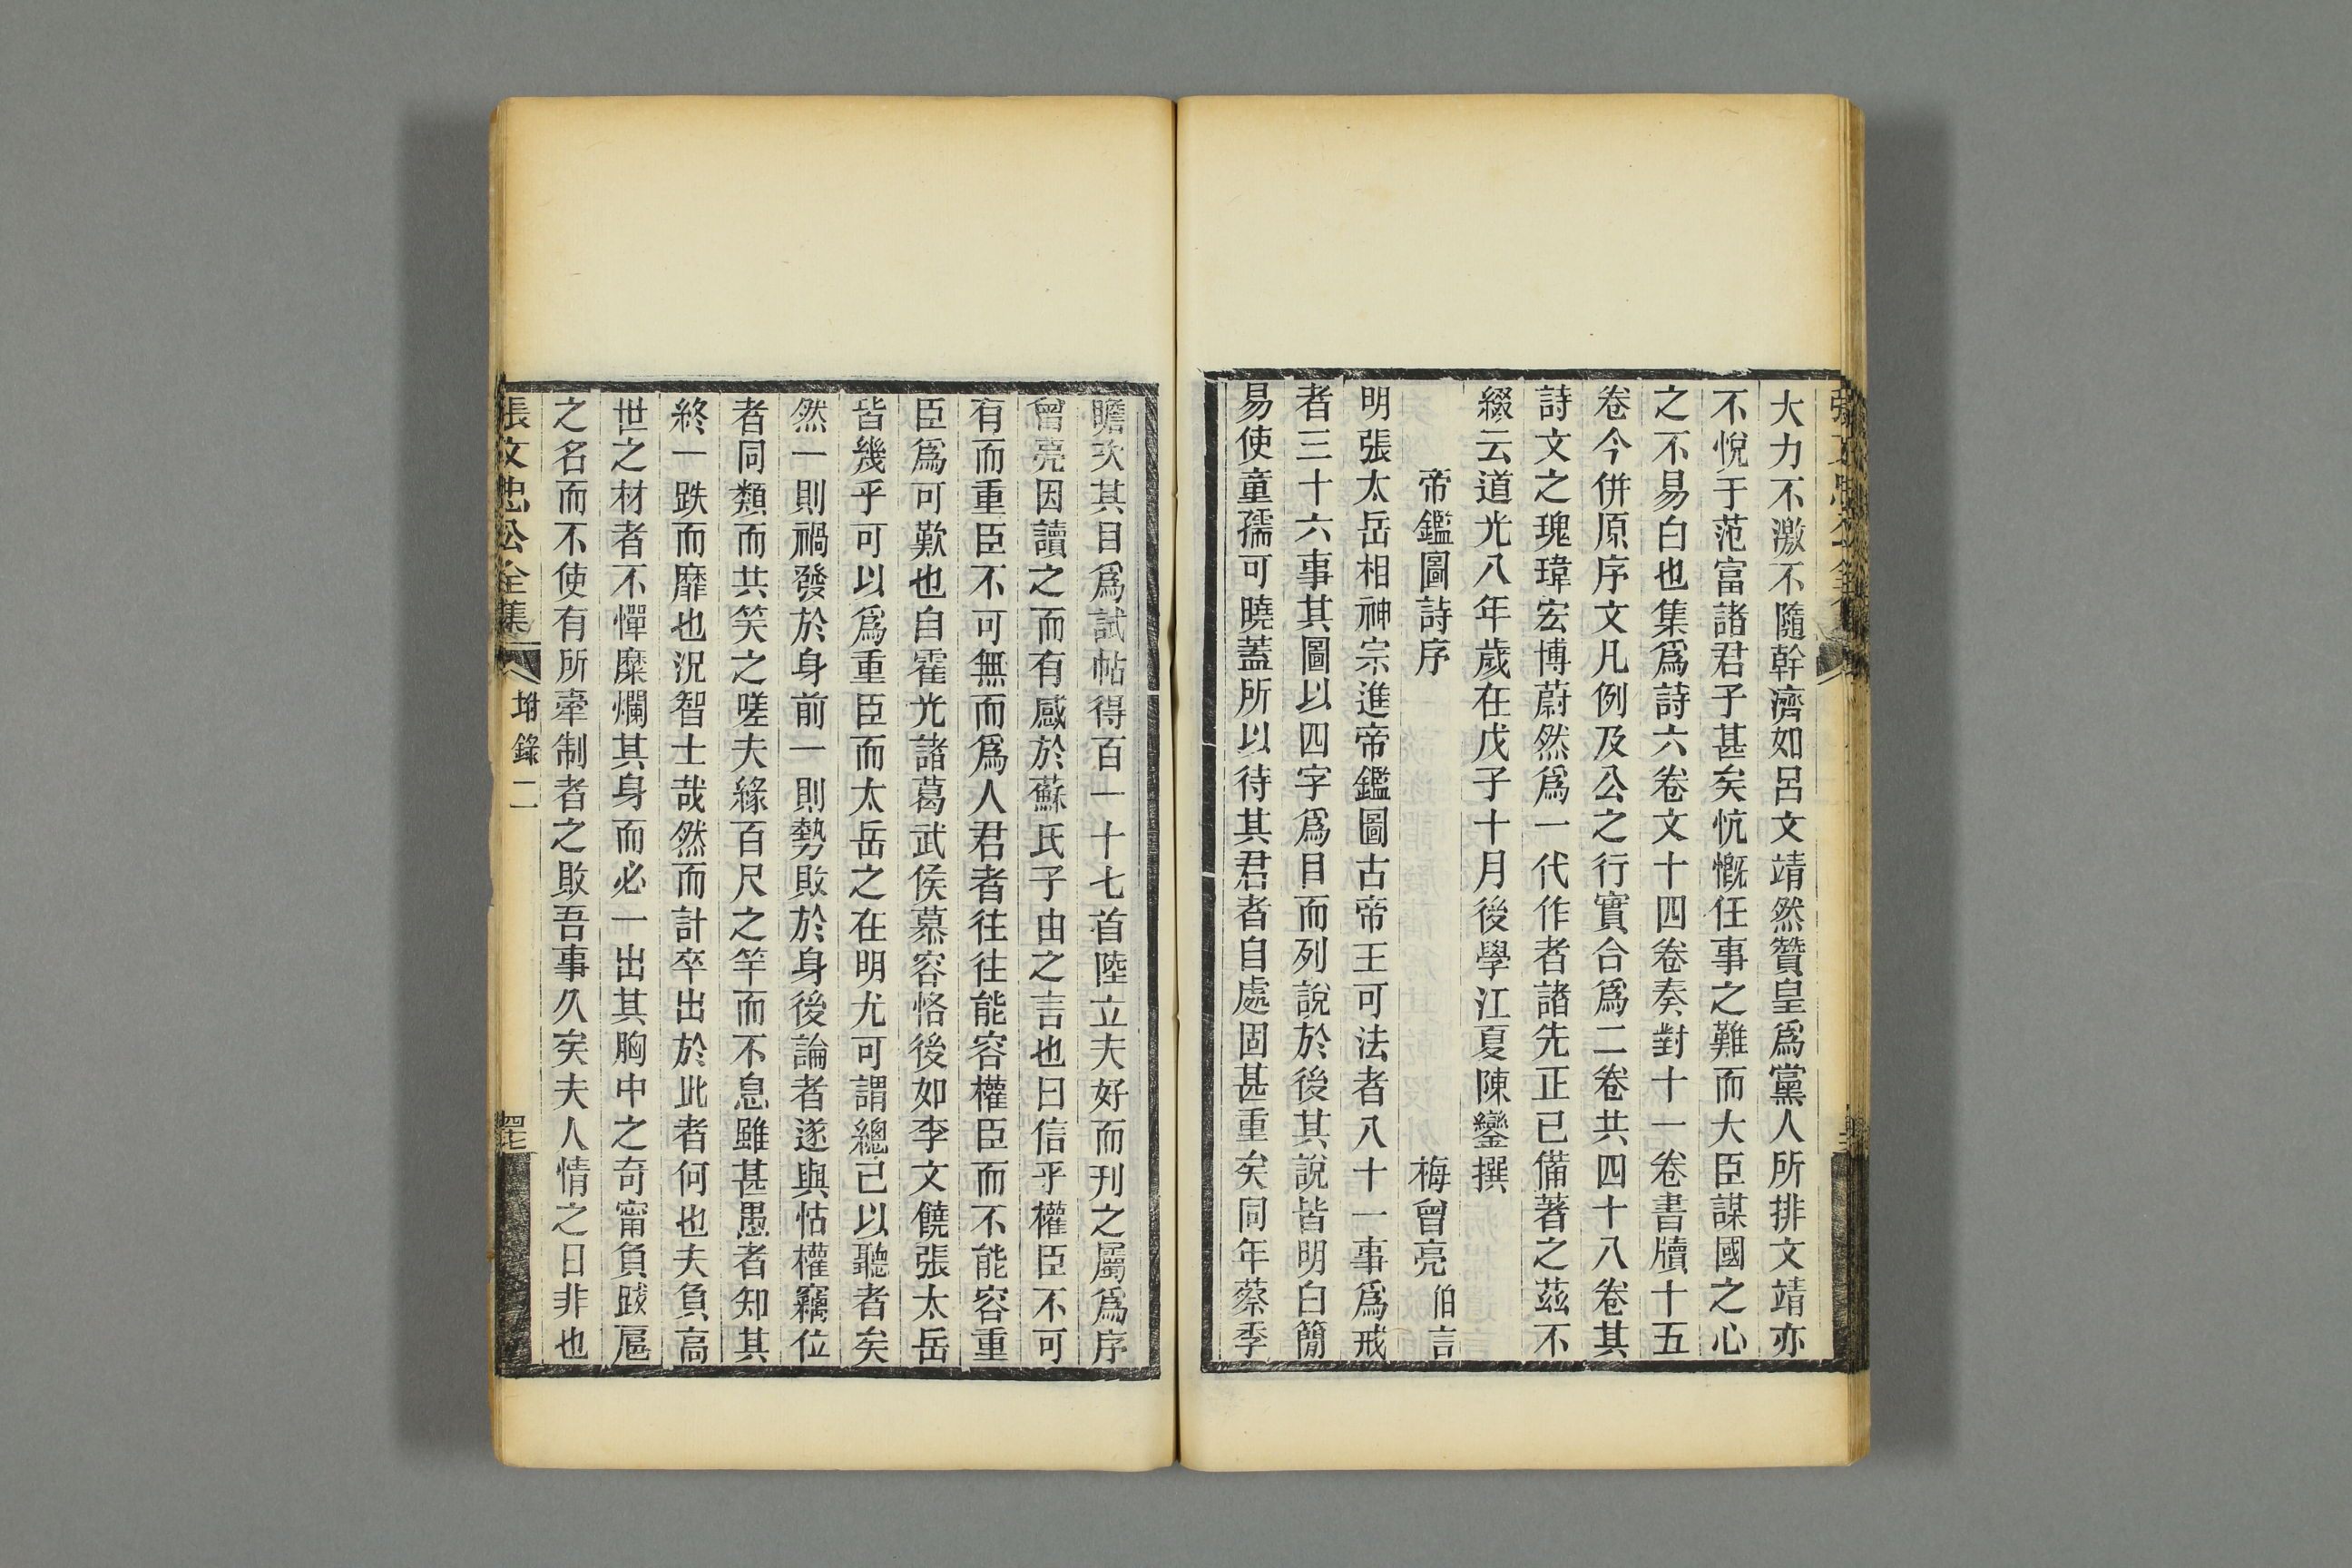 大力不激不隨幹濟如呂文靖然贊皇爲黨人所排文靖亦
不悅于范富諸君子甚矣忼慨任事之難而大臣謀國之心
之不易白也集爲詩六卷文十四卷奏對十一卷書牘十五
卷今併原序文凡例及公之行實合爲二卷共四十八卷其
詩文之瑰瑋宏博蔚然爲一代作者諸先正已備著之茲不
綴云道光八年歲在戊子十月後學江夏陳鑾撰
帝鑑圖詩序 梅曾亮 伯言
明張太岳相神宗進帝鑑圖古帝王可法者八十一事爲戒
者三十六事其圖以四字爲目而列說於後其說皆明白簡
易使童孺可曉蓋所以待其君者自處固甚重矣同年蔡季
瞻次其目爲試帖得百一十七首陸立夫好而刊之屬爲序
曾亮因讀之而有感於蘇氏子由之言也曰信乎權臣不可
有而重臣不可無而爲人君者往往能容權臣而不能容重
臣爲可歎也自霍光諸葛武侯慕容恪後如李文饒張太岳
皆幾乎可以爲重臣而太岳之在明尤可謂總己以聽者矣
然一則禍發於身前一則勢敗於身後論者遂與怙權竊位
者同類而共笑之嗟夫緣百尺之竿而不息雖甚愚者知其
終一跌而靡也況智士哉然而計卒出於此者何也夫負高
世之材者不憚糜爛其身而必一出其胸中之奇甯負跋扈
之名而不使有所牽制者之敗吾事久矣夫人情之日非也
張文忠公全集
坿錄二